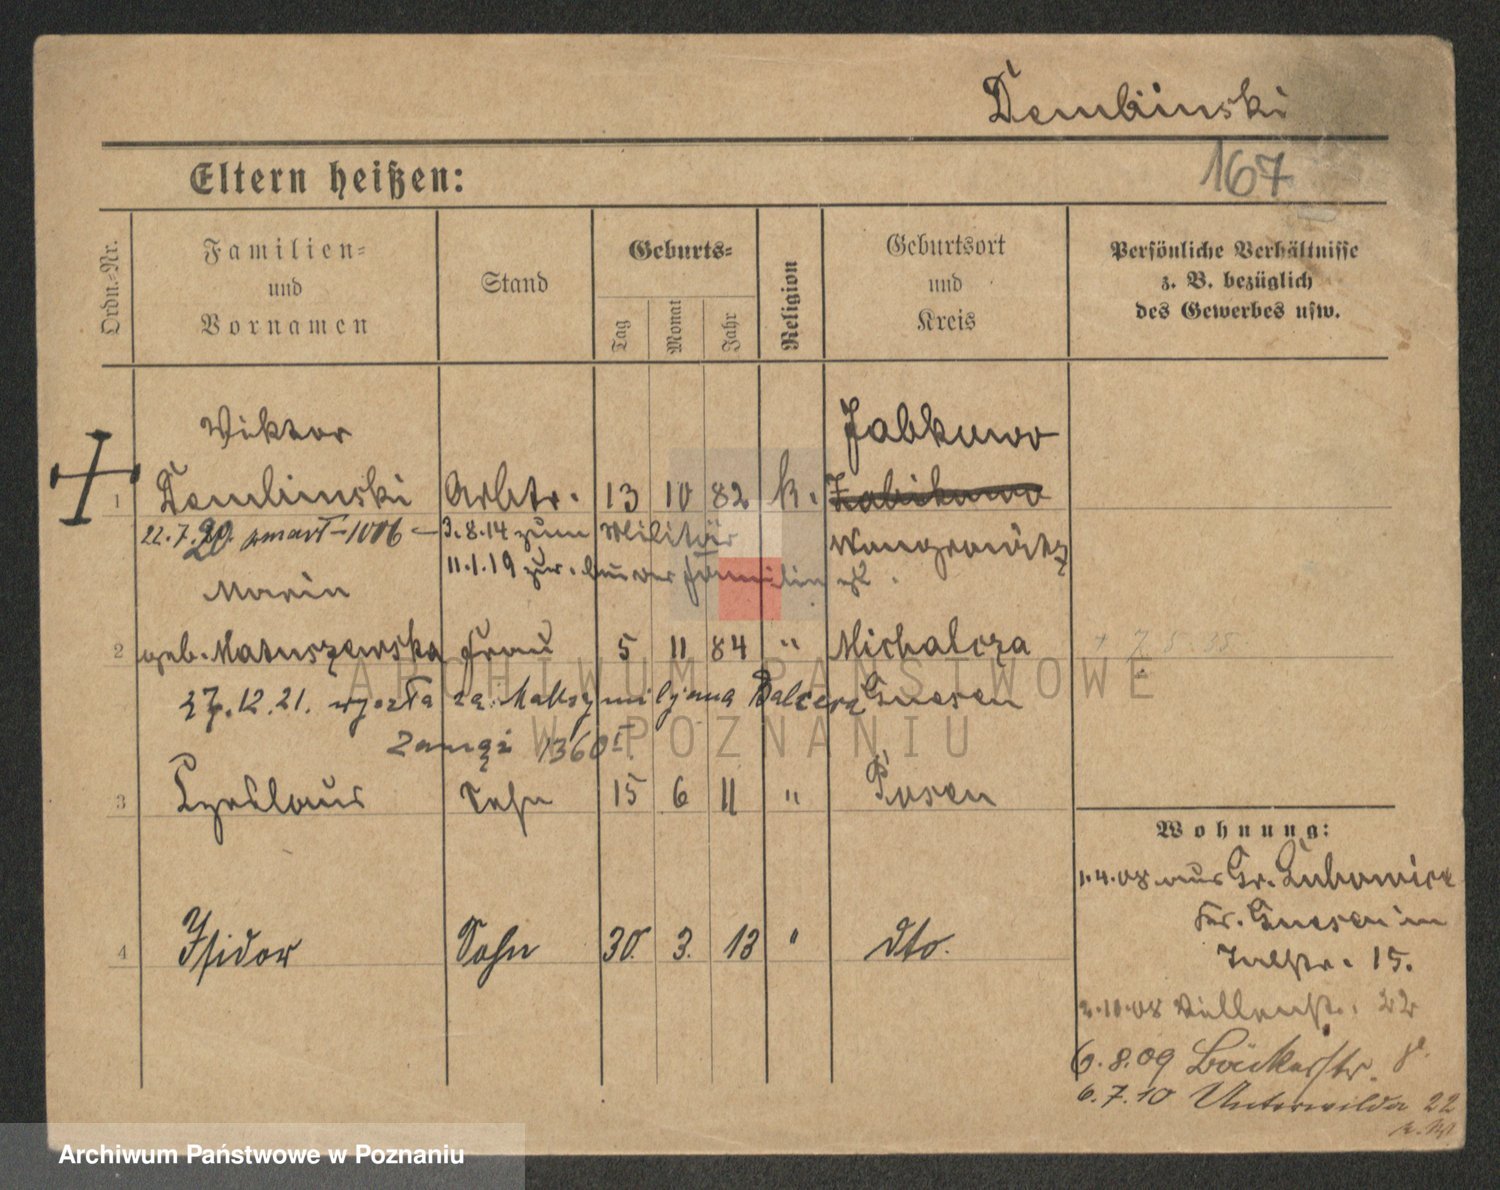 Dembinski
167
Eltern heißen:
Ordn.-Nr.
Familien-
und
Vornamen
Stand
Geburts-
Tag
Monat
Jahr
Religion
Geburtsort
und
Kreis
Persönliche Verhältnisse
z. B. bezüglich
des Gewerbes usw.
Viktor
Jabkowo
1 Dembinski Arbtr. 13 10 82 k. Zabikowo
22.7.20. zmarł - 1006 - 3.8.14 zum Militär Wongrowitz
11.1.19 zur. bei der Familie
Maria
2 geb. Matuszewska Frau 5 11 84 " Michalcza
+ 7.5.35
27.12.21. wyszła za Maksymiljana Balcerz Gnesen
zamąż 1360
3 Czeslaus Sohn 15 6 11 " Posen
Wohnung:
1.4.08 aus Gr. Lubowice
Kr. Gnesen in
15.
4 Isidor Sohn 30. 3. 13 " dto.
2.10.08 22
6.8.09 Bäckerstr. 8.
6.7.10 Unterwilda 22
ARCHIWUM PAŃSTWOWE
W POZNANIU
Archiwum Państwowe w Poznaniu